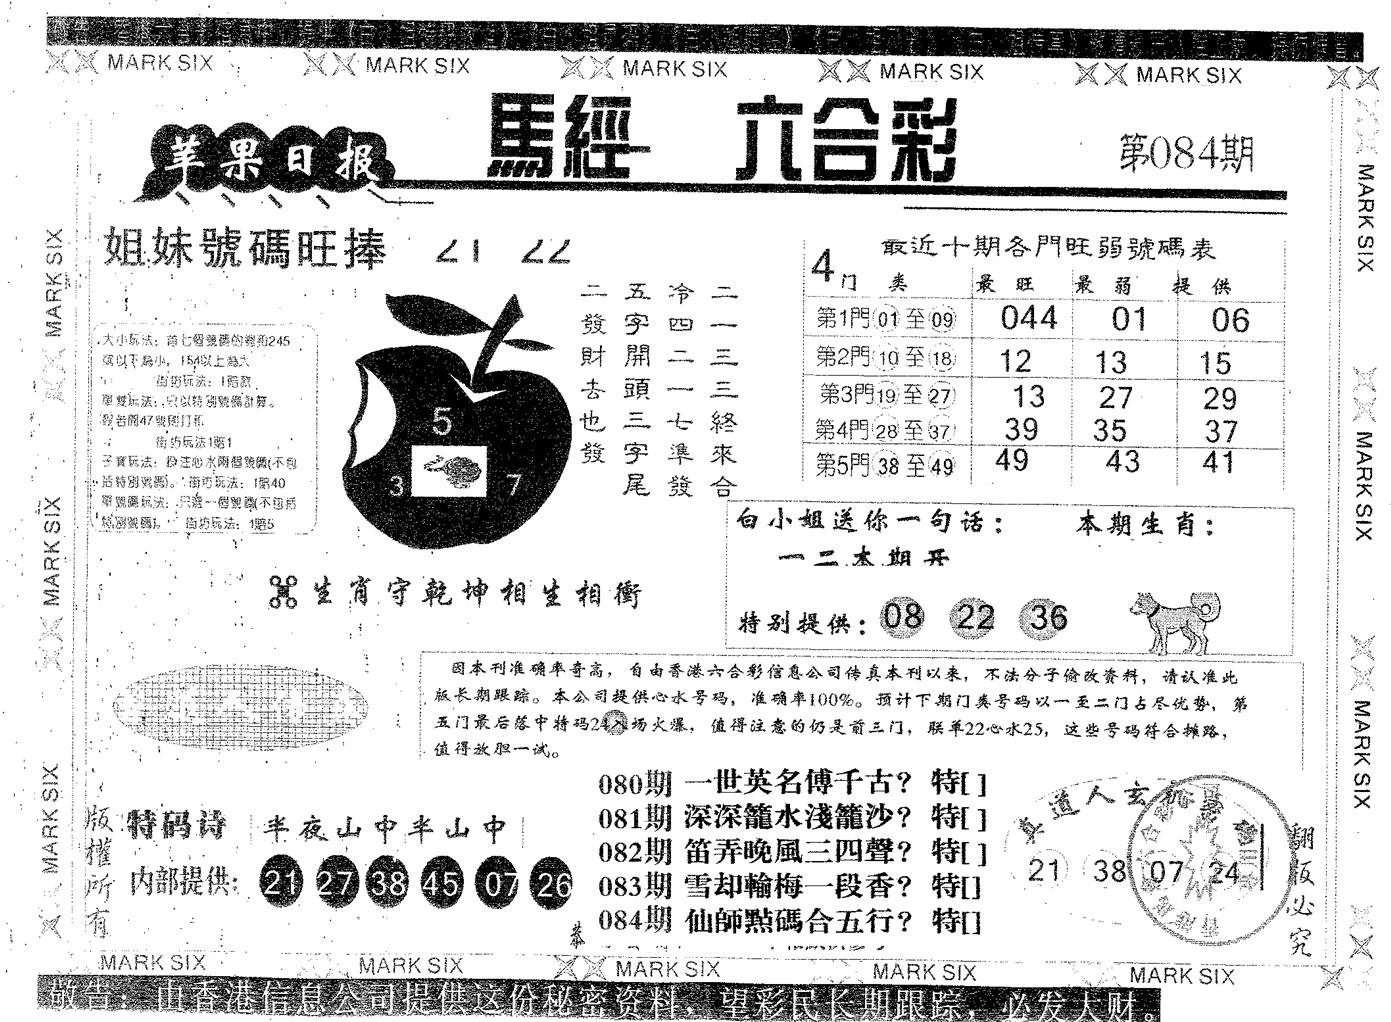 MARK SIX MARK SIX MARK SIX MARK SIX MARK SIX
苹果日报
馬經 六合彩
第084期
姐妹號碼旺捧 21 22
大小玩法：首七個號碼的總和245
或以下為小，154以上為大
街坊玩法：1賠款
單雙玩法：只以特別號碼計算。
街坊玩法1賠1
子寶玩法：投注心水兩個號碼(不包
括特別號碼)。街坊玩法：1賠40
單號碼玩法：只選一個號碼(不包括
特別號碼)。街坊玩法：1賠5
5
3 7
二發財去也發
五字開頭三字尾
冷四二一七準發
二一三三終來合
最近十期各門旺弱號碼表
4门 类 最旺 最弱 提供
第1門 01至09 044 01 06
第2門 10至18 12 13 15
第3門 19至27 13 27 29
第4門 28至37 39 35 37
第5門 38至49 49 43 41
生肖守乾坤相生相衝
白小姐送你一句话： 本期生肖：
一二本期开
特别提供：08 22 36
因本刊准确率奇高，自由香港六合彩信息公司传真本刊以来，不法分子偷改资料，请认准此
版长期跟踪。本公司提供心水号码，准确率100%。预计下期门类号码以一至二门占尽优势，第
五门最后落中特码24入场火爆，值得注意的仍是前三门，联单22心水25，这些号码符合摊路，
值得放胆一试。
版權所有
特码诗 半夜山中半山中
内部提供：21 27 38 45 07 26
080期 一世英名傅千古？ 特[ ]
081期 深深籠水淺籠沙？ 特[ ]
082期 笛弄晚風三四聲？ 特[ ]
083期 雪却輸梅一段香？ 特[]
084期 仙師點碼合五行？ 特[]
真道人玄机
21 38 07 24
翻版必究
MARK SIX MARK SIX MARK SIX MARK SIX MARK SIX
MARK SIX MARK SIX MARK SIX
MARK SIX MARK SIX MARK SIX
敬告：由香港信息公司提供这份秘密资料，望彩民长期跟踪，必发大财。